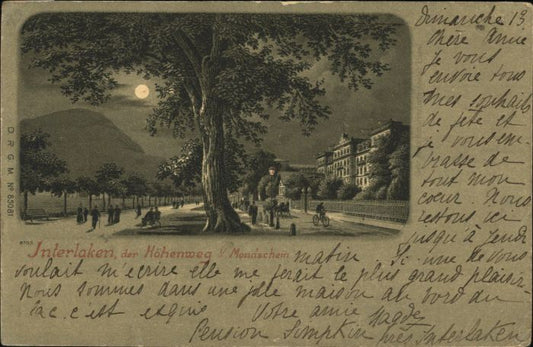 D.R.G.M. No 88081
Dimanche 13
Chère Anne
je vous
envoie tous
mes souhaits
de fête et
je vous em-
brasse de
tout mon
coeur. Nous
restons ici
jusqu'à jeudi
Interlaken, der Höheweg b/ Mondschein
matin, si une de vous
voulait m'ecrire elle me ferait le plus grand plaisir
Nous sommes dans une jolie maison au bord du
lac. c'est exquis Votre amie
Pension Simpkin près Interlaken